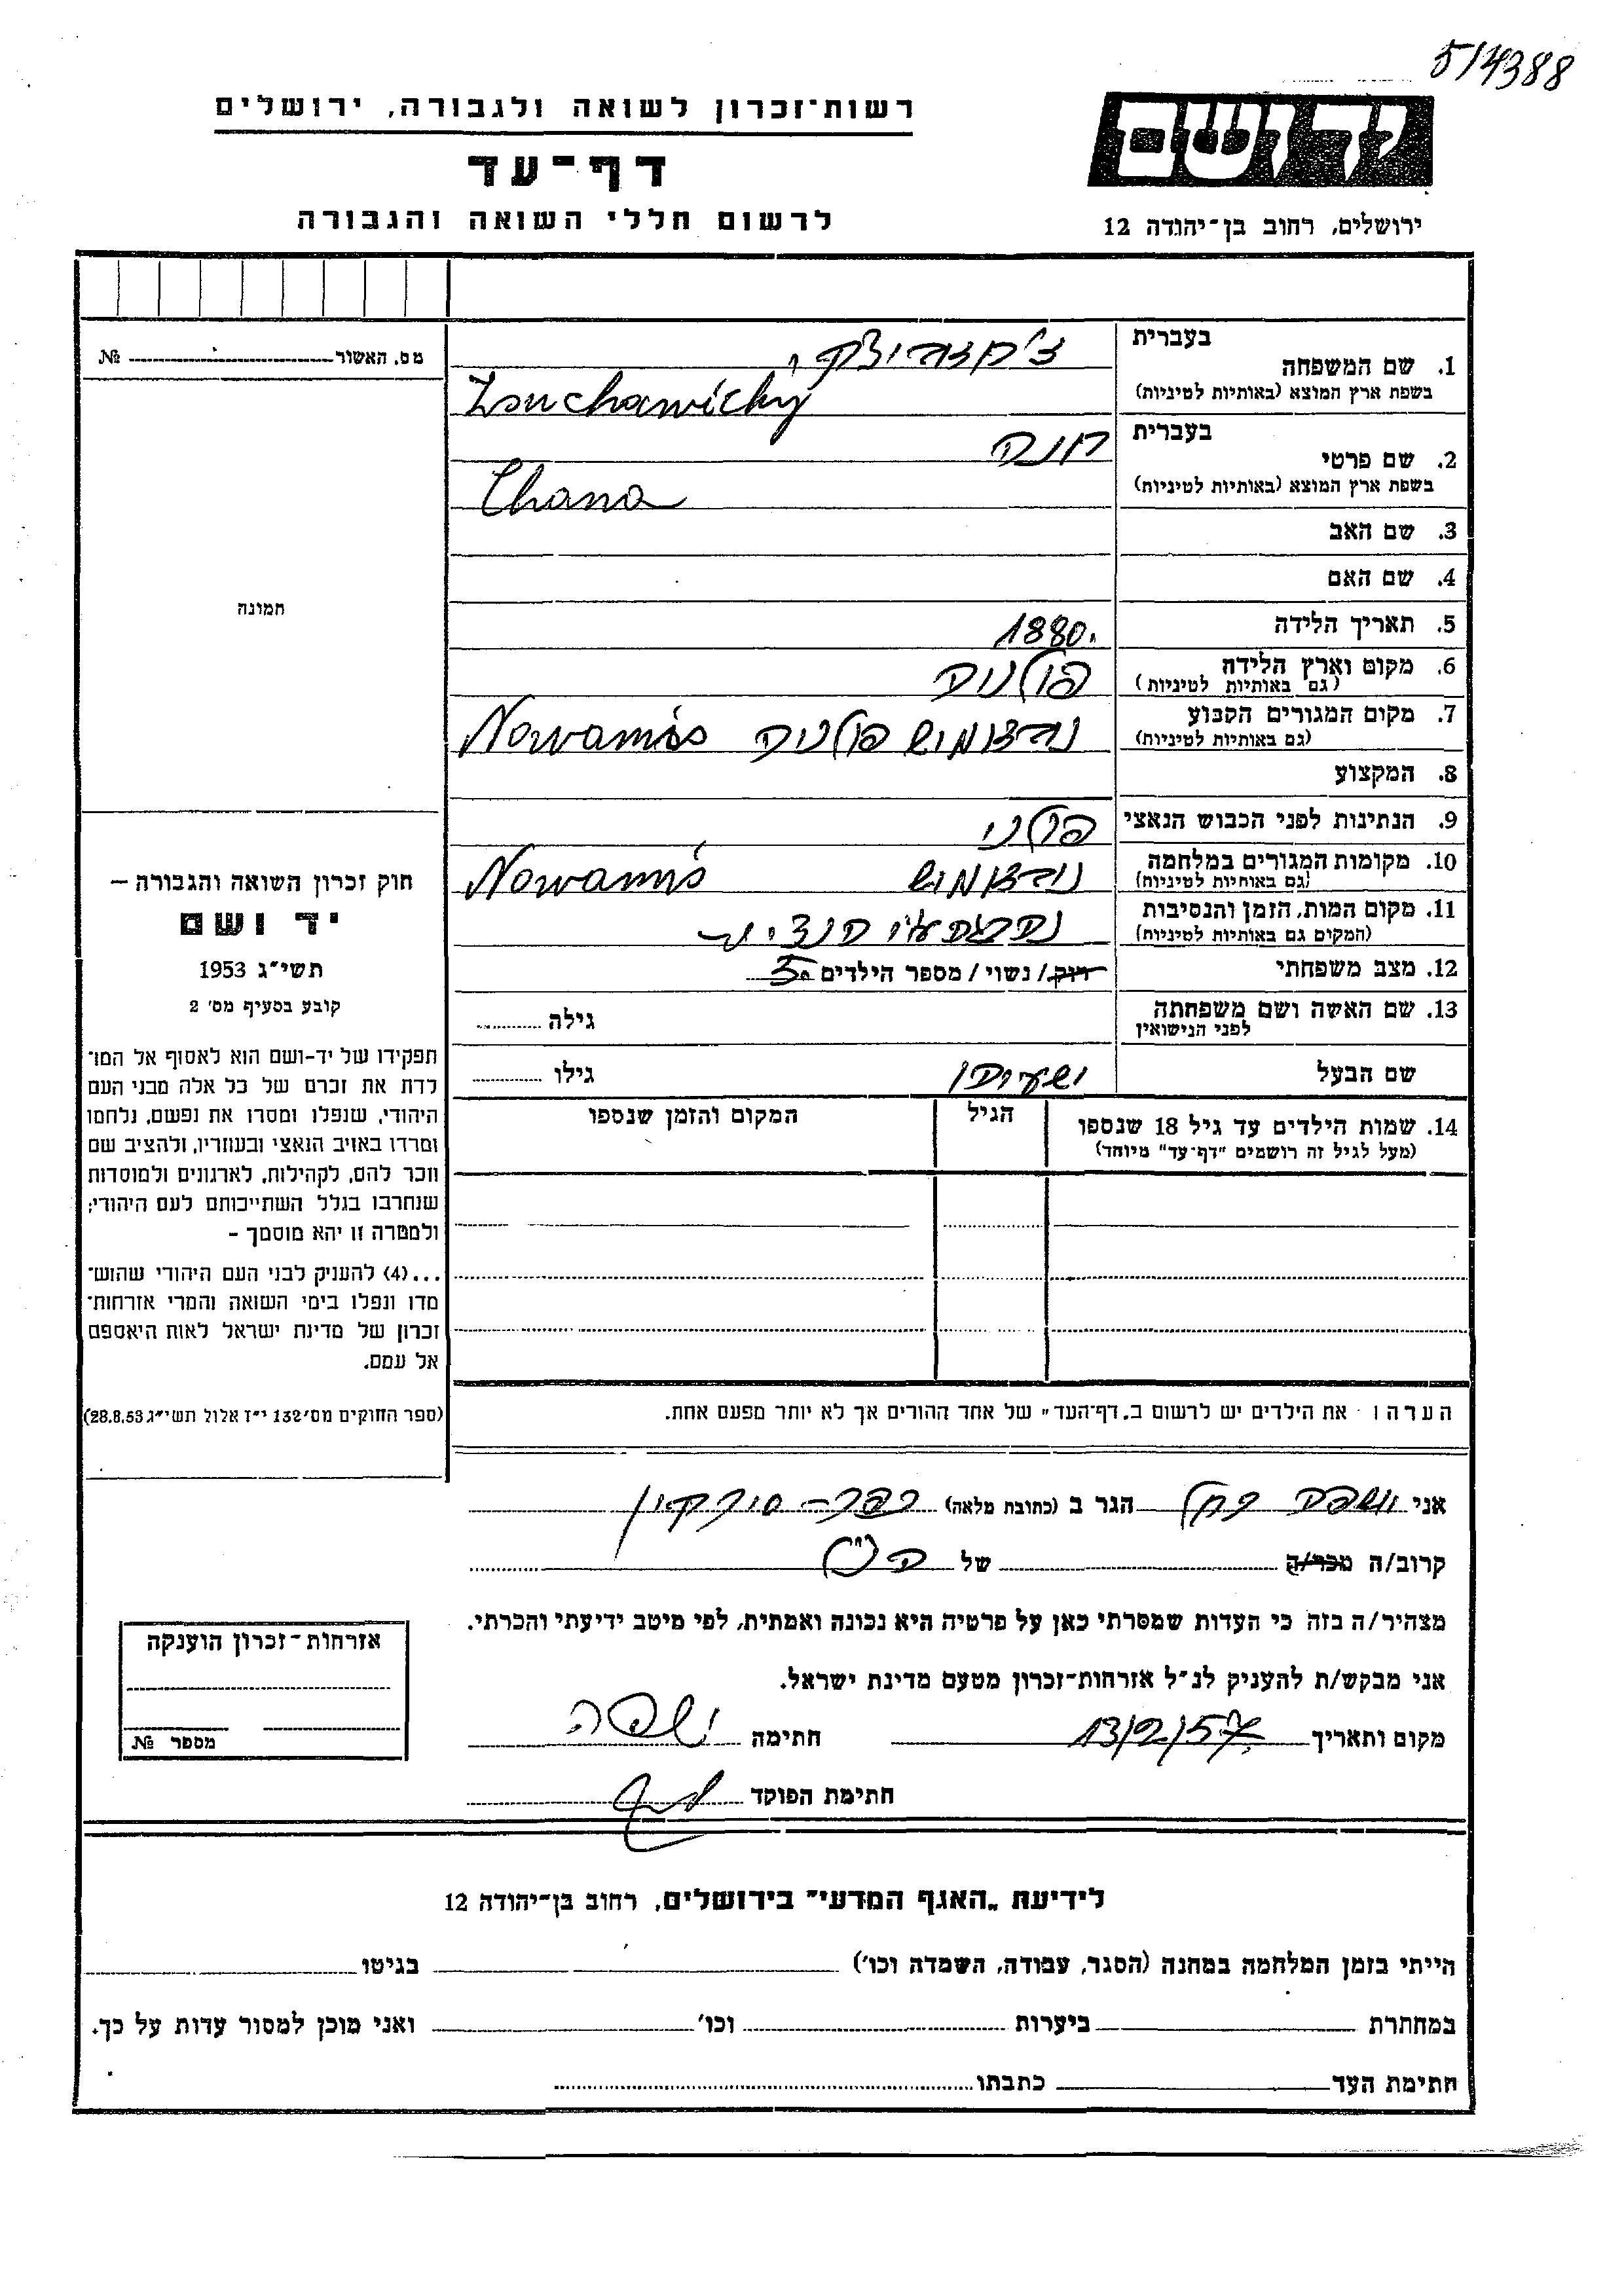 5/4388
רשות־זכרון לשואה ולגבורה, ירושלים
דף־עד
לרשום חללי השואה והגבורה
ידושם
ירושלים, רחוב בן־יהודה 12
מס. האשור № 
בעברית
1. שם המשפחה
בשפת ארץ המוצא (באותיות לטיניות)
Zsuchawichy
בעברית חנה
2. שם פרטי
בשפת ארץ המוצא (באותיות לטיניות) Chana
3. שם האב
4. שם האם
תמונה
5. תאריך הלידה 1880.
6. מקום וארץ הלידה פולניה
(גם באותיות לטיניות)
7. מקום המגורים הקבוע פולניה Nowamiśs
(גם באותיות לטיניות)
8. המקצוע
9. הנתינות לפני הכבוש הנאצי פולני
10. מקומות המגורים במלחמה Nowamiś
(גם באותיות לטיניות)
11. מקום המות, הזמן והנסיבות
(המקום גם באותיות לטיניות)
12. מצב משפחתי רווק / נשוי / מספר הילדים 5
13. שם האשה ושם משפחתה גילה
לפני הנישואין
שם הבעל ישעיהו גילו
14. שמות הילדים עד גיל 18 שנספו הגיל המקום והזמן שנספו
(מעל לגיל זה רושמים "דף־עד" מיוחד)
הערה: את הילדים יש לרשום ב"דף־העד" של אחד ההורים אך לא יותר מפעם אחת.
חוק זכרון השואה והגבורה –
יד ושם
תשי"ג 1953
קובע בסעיף מס' 2
תפקידו של יד-ושם הוא לאסוף אל המו־
לדת את זכרם של כל אלה מבני העם
היהודי, שנפלו ומסרו את נפשם, נלחמו
ומרדו באויב הנאצי ובעוזריו, ולהציב שם
וזכר להם, לקהילות, לארגונים ולמוסדות
שנחרבו בגלל השתייכותם לעם היהודי;
ולמטרה זו יהא מוסמך –
...(4) להעניק לבני העם היהודי שהוש־
מדו ונפלו בימי השואה והמרי אזרחות־
זכרון של מדינת ישראל לאות היאספם
אל עמם.
(ספר החוקים מס' 132 י"ז אלול תשי"ג 28.8.53)
אני רחל הגר ב (כתובת מלאה) כפר-סירקין
קרוב/ה מכר/ה של
מצהיר/ה בזה כי העדות שמסרתי כאן על פרטיה היא נכונה ואמתית, לפי מיטב ידיעתי והכרתי.
אני מבקש/ת להעניק לנ"ל אזרחות־זכרון מטעם מדינת ישראל.
מקום ותאריך 13/2/57 חתימה
חתימת הפוקד
אזרחות־זכרון הוענקה
מספר №
לידיעת "האגף המדעי" בירושלים, רחוב בן־יהודה 12
הייתי בזמן המלחמה במחנה (הסגר, עבודה, השמדה וכו') בגיטו
במחתרת ביערות וכו' ואני מוכן למסור עדות על כך.
חתימת העד כתבתו